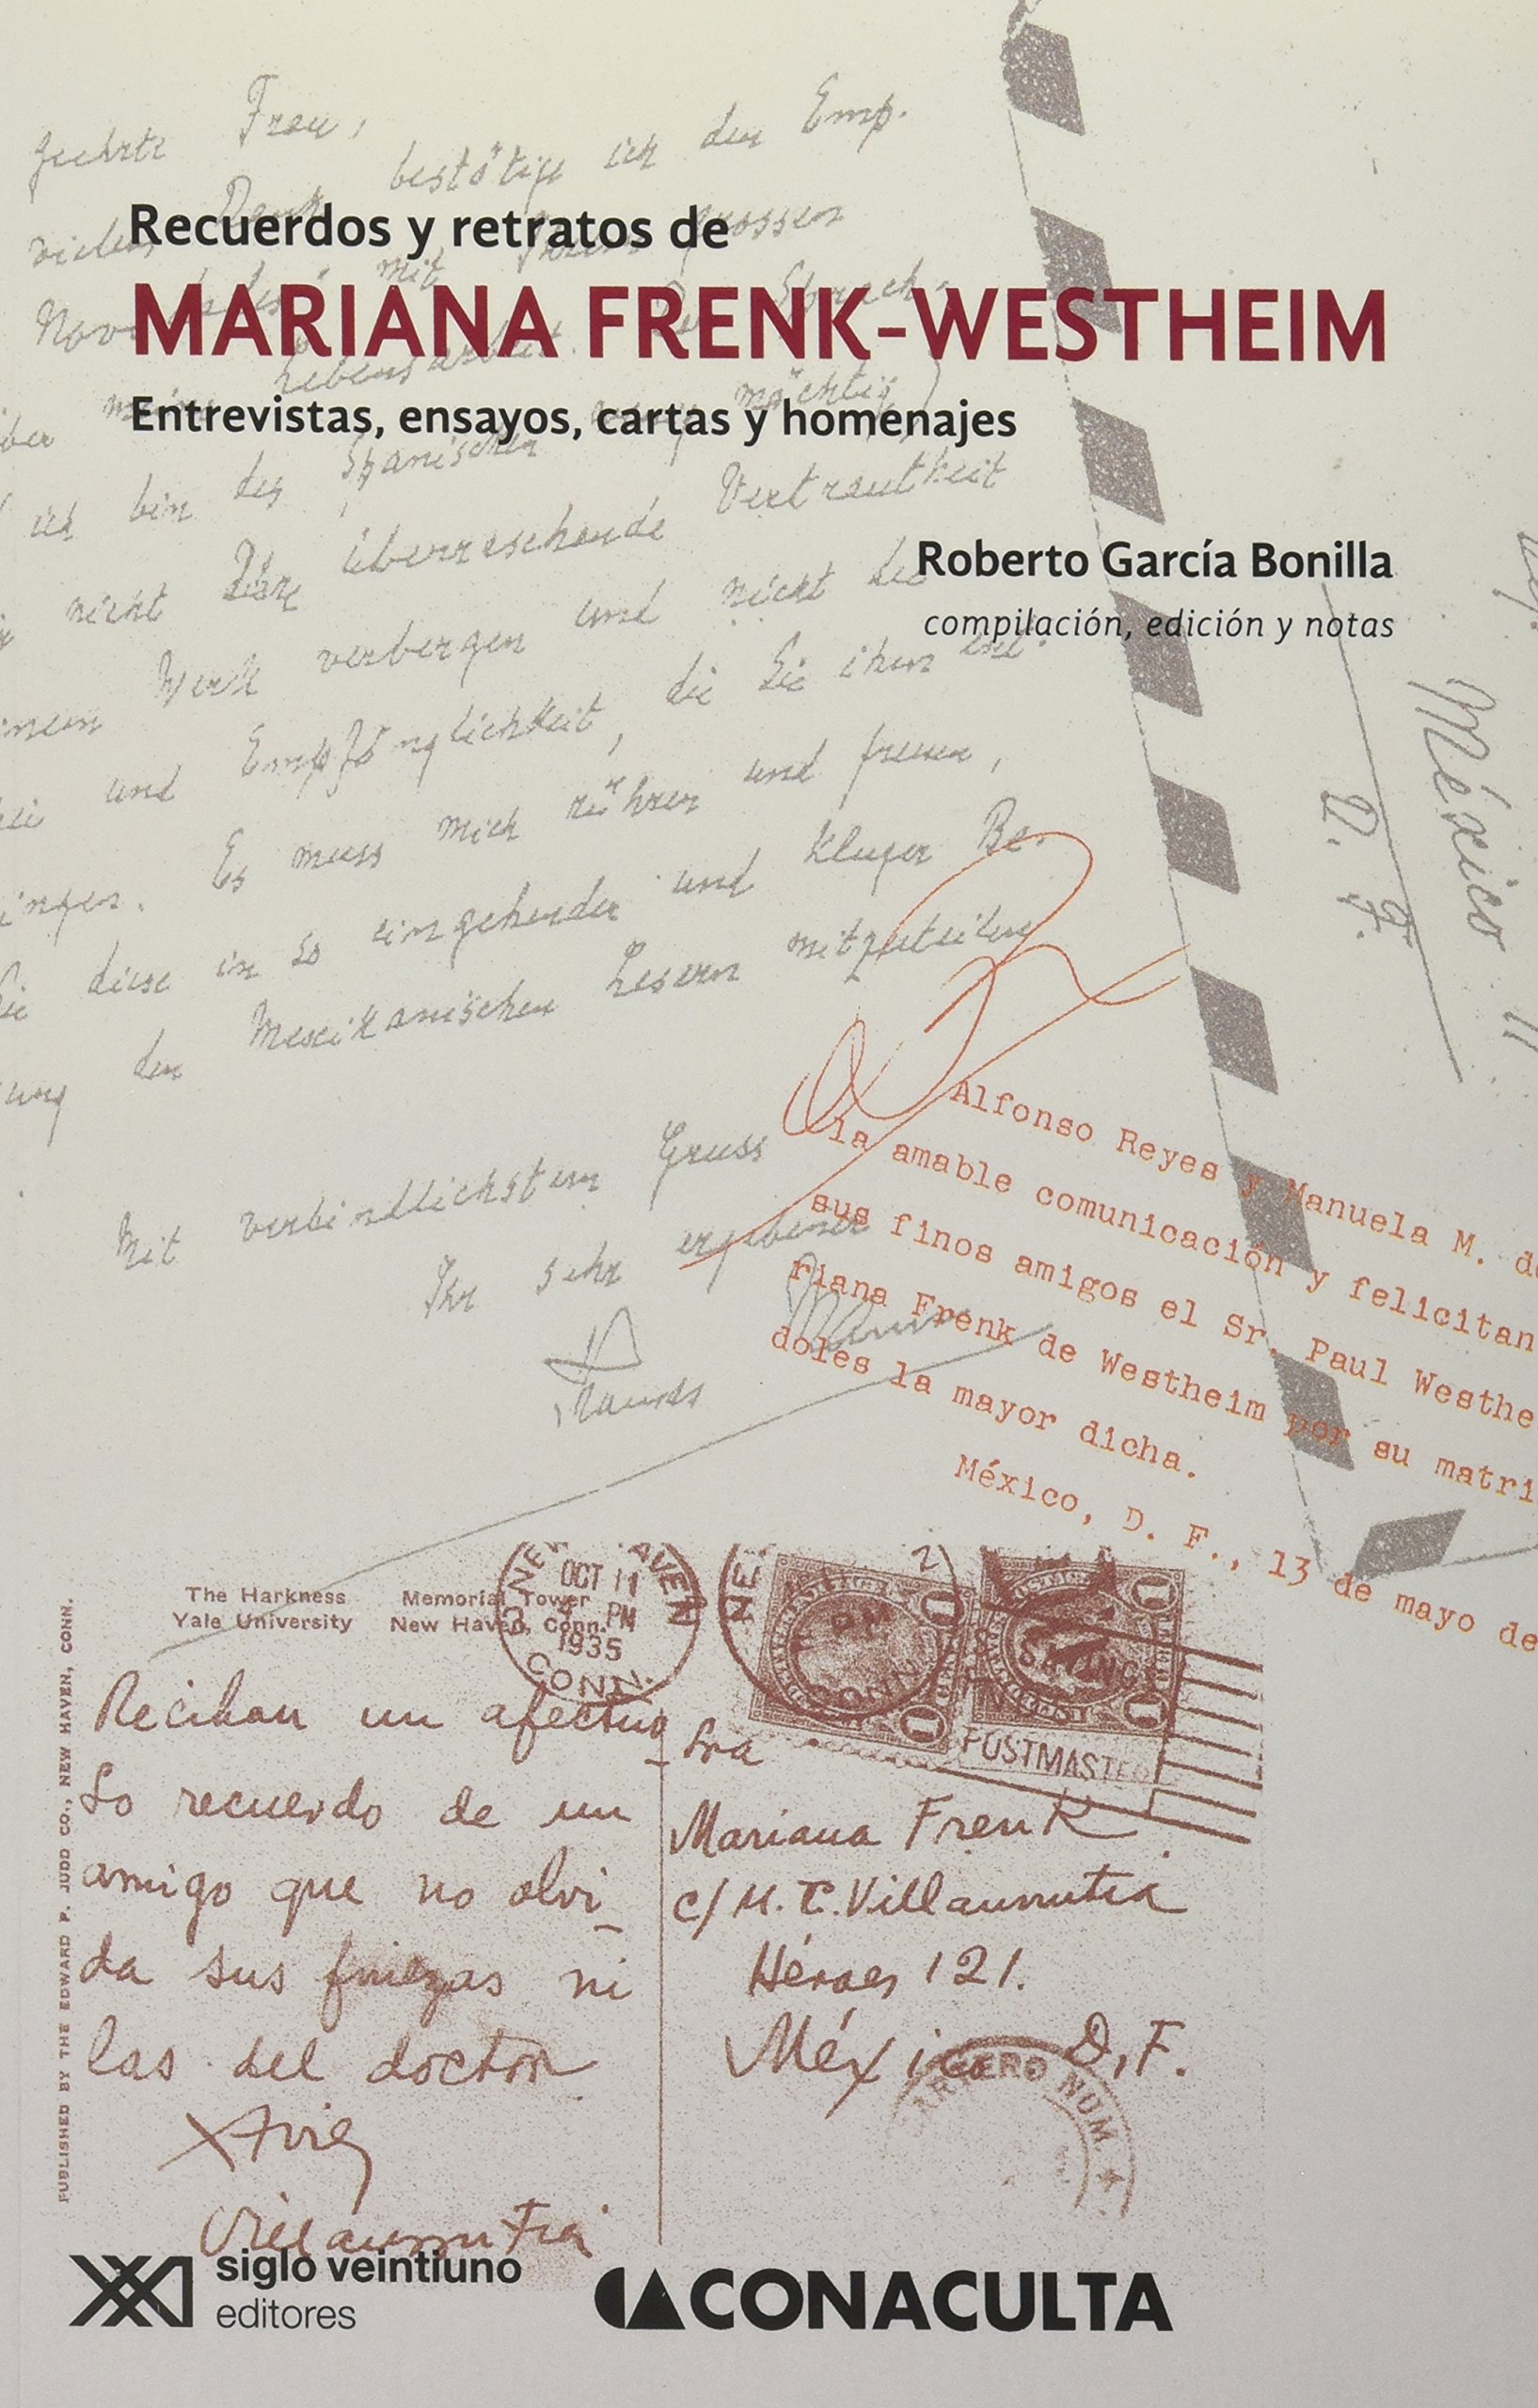 geehrte Frau,
bestätige ich den Emp.
vielem Dank
mit Ihrem grossen
Recuerdos y retratos de
MARIANA FRENK-WESTHEIM
Lebensarbeit.
Entrevistas, ensayos, cartas y homenajes
mächtig)
ich bin des Spanischen
nicht Ihre überraschende Vertrautheit
Roberto García Bonilla
compilación, edición y notas
Werk verbergen und nicht die
und Empfänglichkeit, die Sie ihm
Es muss mich rühren und freuen,
diese in so eingehender und kluger Be.
den Mexikanischen Lesern mitzuteilen
Mit verbindlichstem Gruss
Ihr sehr ergebener
México
D. F.
11
Alfonso Reyes y Manuela M. de
la amable comunicación y felicitan
sus finos amigos el Sr. Paul Westhe
riana Frenk de Westheim por su matri
doles la mayor dicha.
México, D. F., 13 de mayo de
The Harkness Memorial Tower
Yale University New Haven, Conn.
NEW HAVEN
OCT 11
4 PM
1935
CONN.
POSTMASTER
PUBLISHED BY THE EDWARD P. JUDD CO., NEW HAVEN, CONN.
Reciban un afectuo
so recuerdo de un
amigo que no olvi_
da sus finezas ni
las del doctor
Xavier
Villaurrutia
Sra
Mariana Frenk
c/ M. T. Villaurrutia
Héroes 121.
México D.F.
CARTERO NUM
siglo veintiuno
editores
CONACULTA